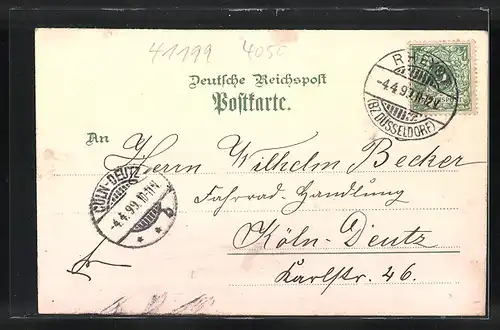 41199 4050
Deutsche Reichspost
Postkarte.
RHEYDT
-4.4.99.11-12V.
(BZ.DÜSSELDORF)
An
Herrn Wilhelm Becker
Fahrrad-Handlung
Köln-Deutz
Karlstr. 46.
CÖLN-DEUTZ
-4.4.99.
b